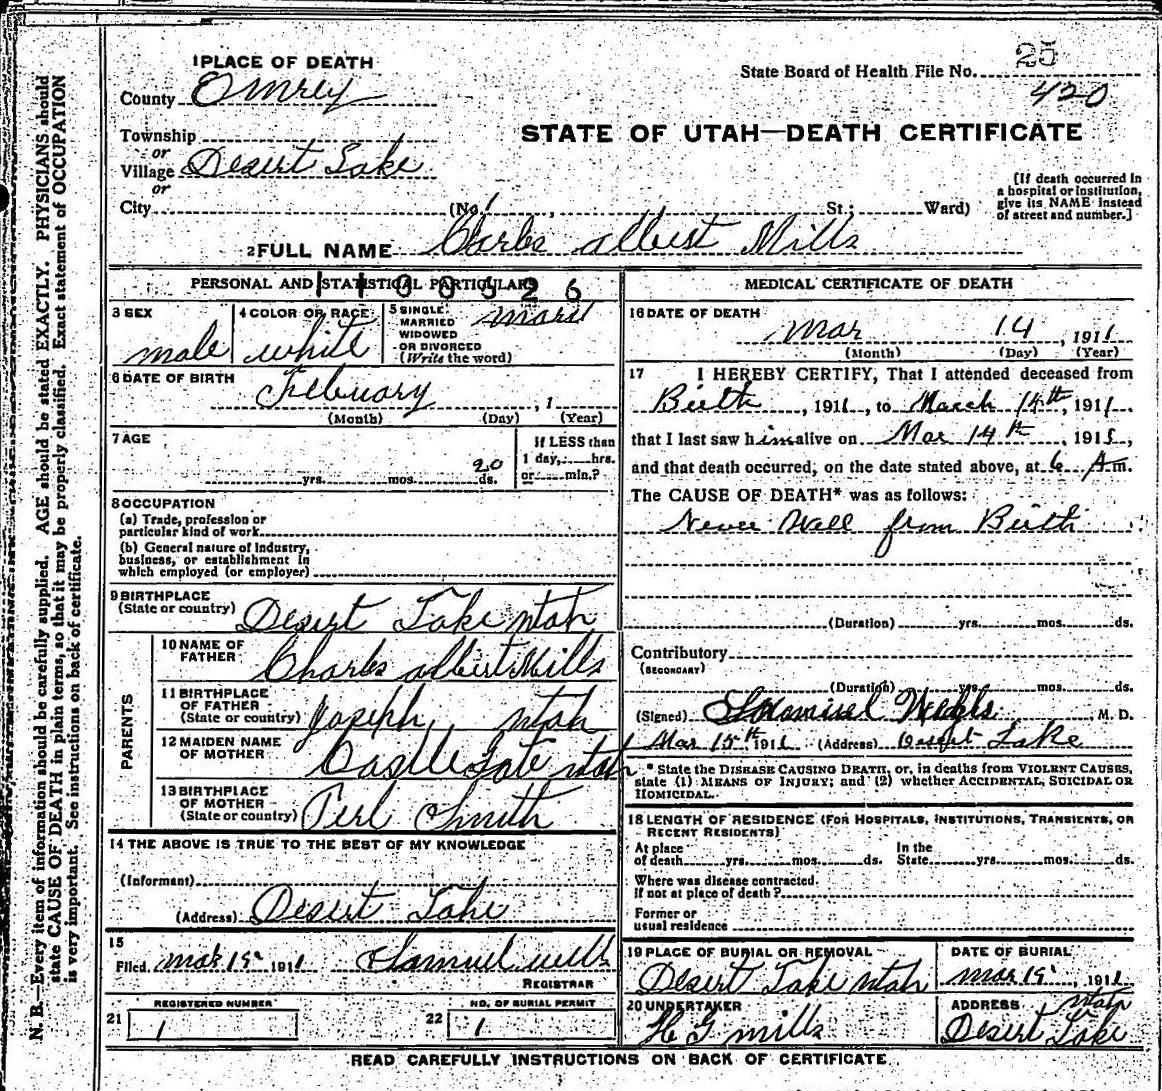 N. B.—Every item of information should be carefully supplied. AGE should be stated EXACTLY. PHYSICIANS should
state CAUSE OF DEATH in plain terms, so that it may be properly classified. Exact statement of OCCUPATION
is very important. See instructions on back of certificate.
1 PLACE OF DEATH
County Emrey
Township
or
Village Desert Lake
or
City (No. , St.; Ward)
State Board of Health File No. 25
420
STATE OF UTAH—DEATH CERTIFICATE
[If death occurred in
a hospital or institution,
give its NAME instead
of street and number.]
2 FULL NAME Charles albert Mills
PERSONAL AND STATISTICAL PARTICULARS
1100526
3 SEX
male
4 COLOR OR RACE
white
5 SINGLE
MARRIED
WIDOWED
OR DIVORCED
(Write the word)
6 DATE OF BIRTH
February , 1
(Month) (Day) (Year)
7 AGE
yrs. mos. 20 ds.
If LESS than
1 day, hrs.
or min.?
8 OCCUPATION
(a) Trade, profession or
particular kind of work
(b) General nature of industry,
business, or establishment in
which employed (or employer)
9 BIRTHPLACE
(State or country) Desert Lake utah
PARENTS
10 NAME OF
FATHER Charles albert Mills
11 BIRTHPLACE
OF FATHER
(State or country) Joseph utah
12 MAIDEN NAME
OF MOTHER Castle Gate utah
13 BIRTHPLACE
OF MOTHER
(State or country) Perl Smith
14 THE ABOVE IS TRUE TO THE BEST OF MY KNOWLEDGE
(Informant)
(Address) Desert Lake
15
Filed mar 15 1911 Samuel wells
REGISTRAR
REGISTERED NUMBER
21 1
NO. OF BURIAL PERMIT
22 1
MEDICAL CERTIFICATE OF DEATH
16 DATE OF DEATH
Mar 14 , 1911
(Month) (Day) (Year)
17 I HEREBY CERTIFY, That I attended deceased from
Birth , 1911, to March 14th, 1911
that I last saw him alive on Mar 14th, 1911,
and that death occurred, on the date stated above, at 6 A.m.
The CAUSE OF DEATH* was as follows:
Never Well from Birth
(Duration) yrs. mos. ds.
Contributory
(SECONDARY)
(Duration) yrs. mos. ds.
(Signed) Samuel Wells M. D.
Mar 15th 1911 (Address) Desert Lake
* State the DISEASE CAUSING DEATH, or, in deaths from VIOLENT CAUSES,
state (1) MEANS OF INJURY; and (2) whether ACCIDENTAL, SUICIDAL OR
HOMICIDAL.
18 LENGTH OF RESIDENCE (FOR HOSPITALS, INSTITUTIONS, TRANSIENTS, OR
RECENT RESIDENTS)
At place In the
of death yrs. mos. ds. State yrs. mos. ds.
Where was disease contracted.
If not at place of death?
Former or
usual residence
19 PLACE OF BURIAL OR REMOVAL
Desert Lake utah
DATE OF BURIAL
mar 15 , 1911
20 UNDERTAKER
H G mills
ADDRESS utah
Desert Lake
READ CAREFULLY INSTRUCTIONS ON BACK OF CERTIFICATE